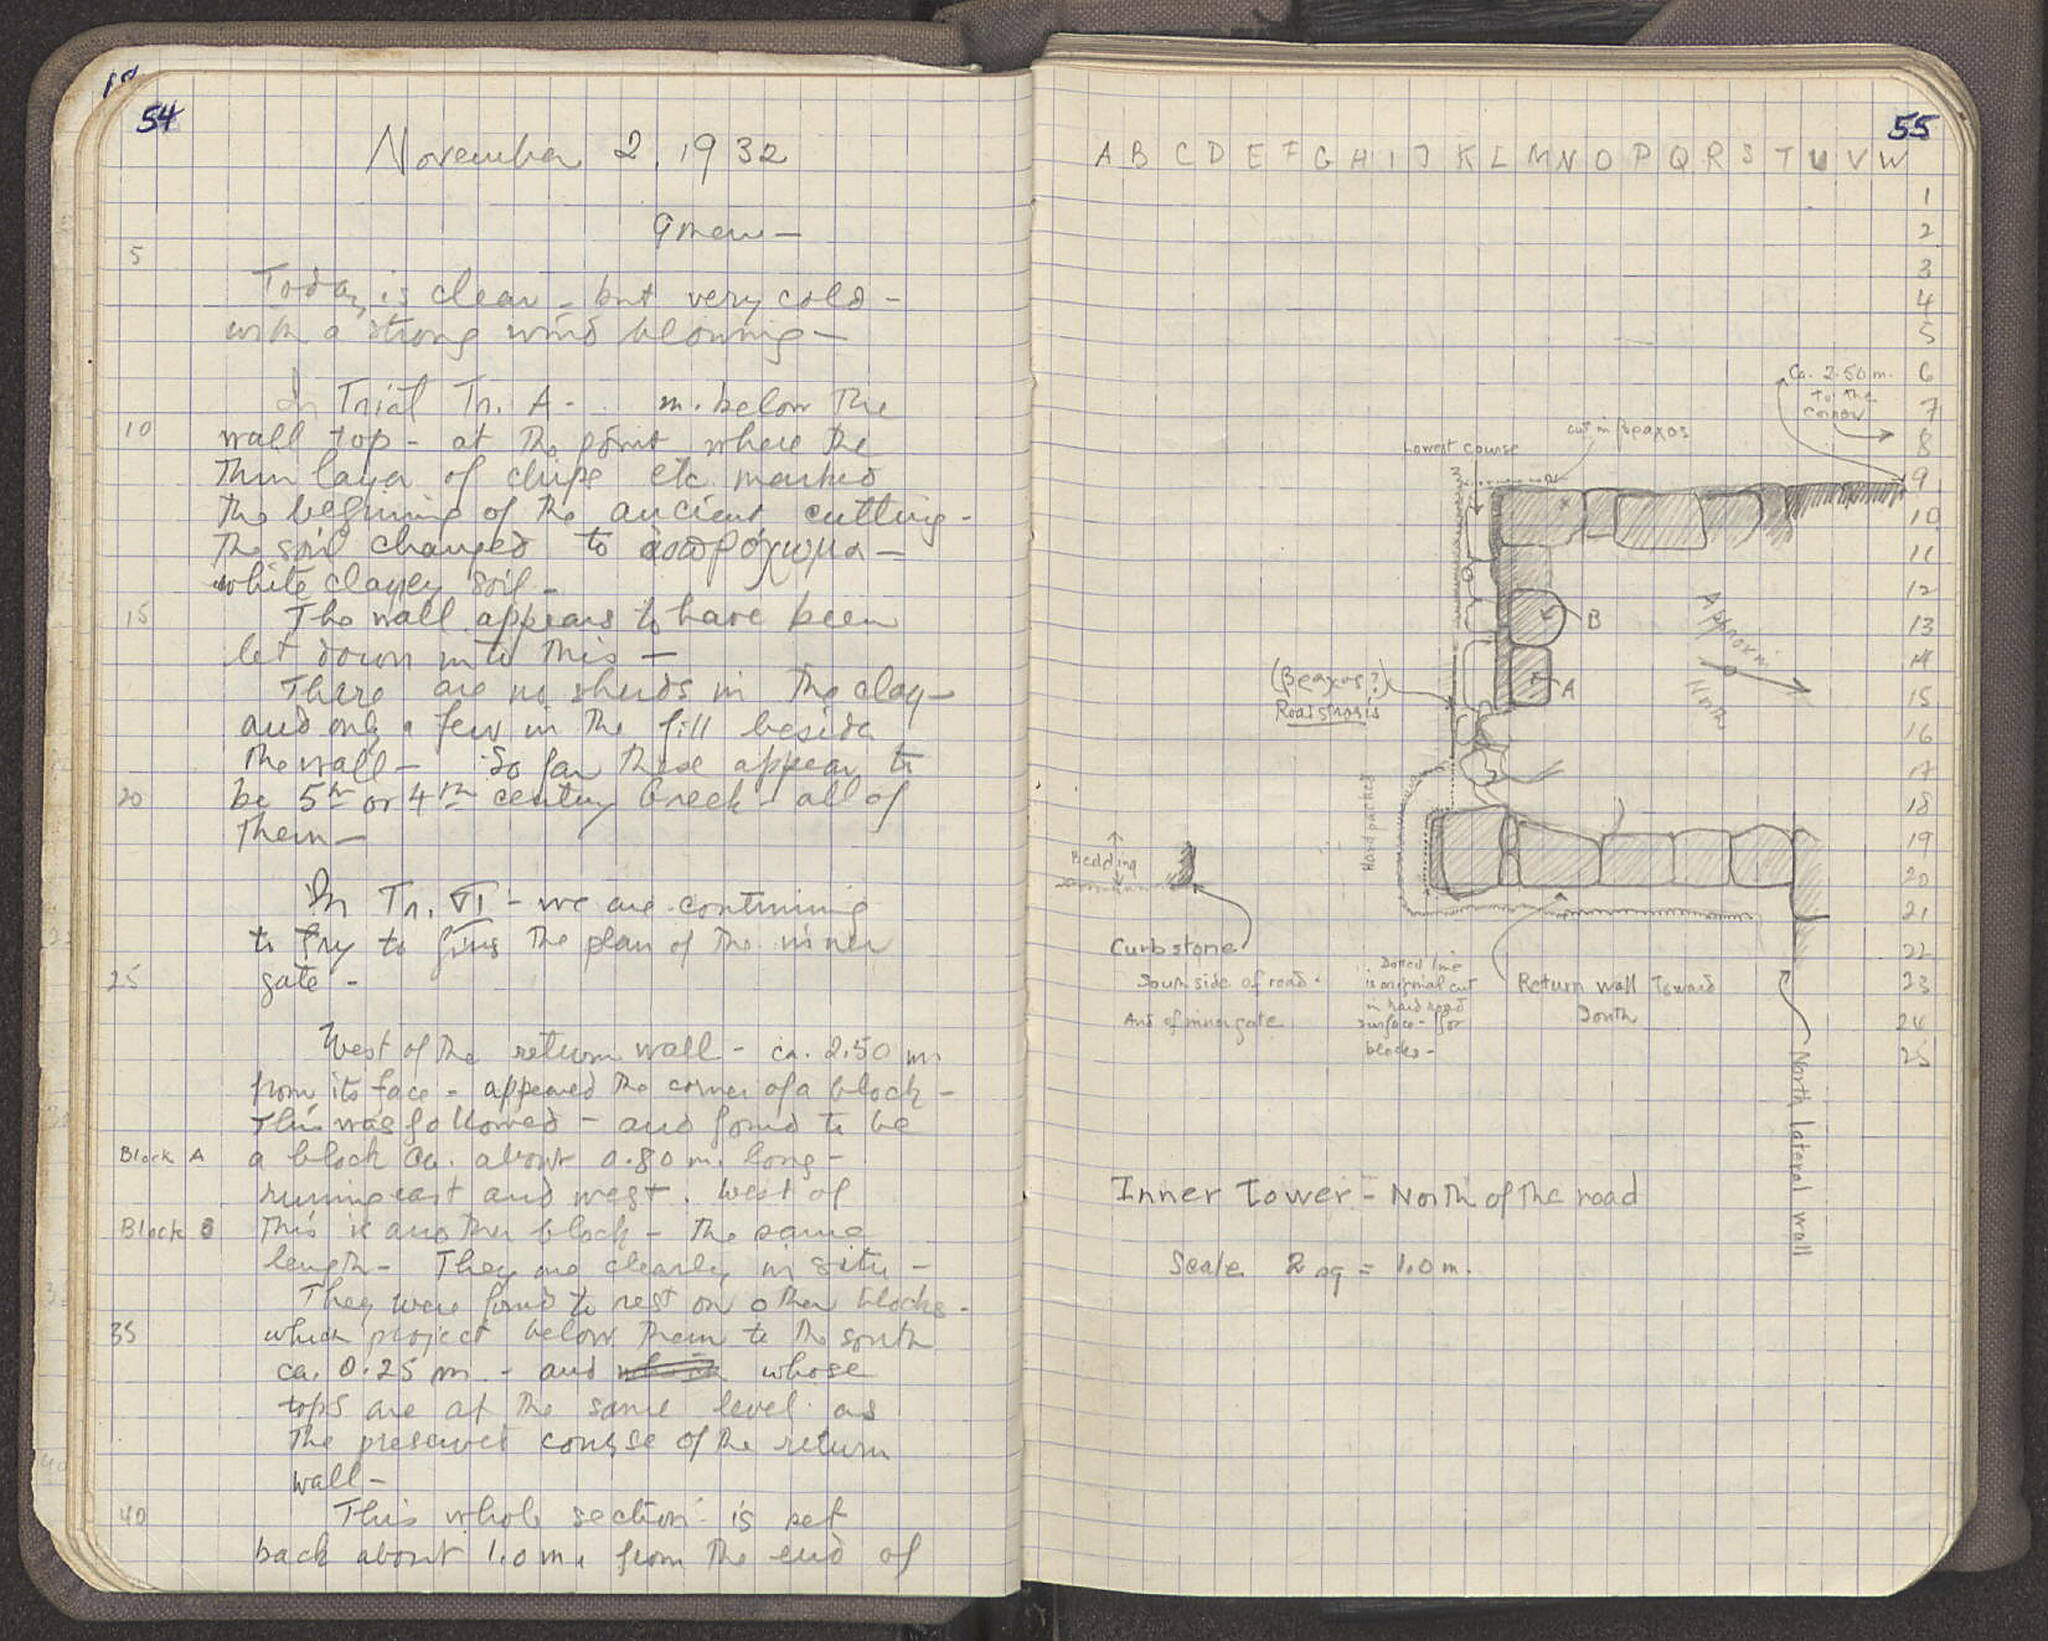 54
November 2, 1932
9 men —
5
Today is clear - but very cold -
with a strong wind blowing —
In Trial Tr. A - . m. below the
10 wall top - at the point where the
thin layer of chips etc. marked
the beginning of the ancient cutting -
the soil changed to ἀσπρόχωμα —
white clayey soil -
15 The wall appears to have been
let down into this —
There are no sherds in the clay —
and only a few in the fill beside
the wall — So far these appear to
20 be 5th or 4th century Greek - all of
them —
In Tr. - we are continuing
to try to find the plan of the inner
25 gate -
West of the return wall - ca. 2.50 m.
from its face - appeared the corner of a block -
This was followed - and found to be
Block A a block ca. about 0.80 m. long -
running east and west. West of
Block B this is another block - the same
length - They are clearly in situ -
They were found to rest on other blocks -
35 which project below them to the south
ca. 0.25 m. - and whose
tops are at the same level as
the preserved course of the return
wall -
40 This whole section is set
back about 1.0 m. from the end of
55
A B C D E F G H I J K L M N O P Q R S T U V W
1
2
3
4
5
6
7
8
9
10
11
12
13
14
15
16
17
18
19
20
21
22
23
24
25
Ca. 2.50 m.
to the
corner
cut in βραχος
Lowest course
B
A
Approxim.
North
(βραχος?)
Road strosis
Hard packed
Bedding
Curbstone
South side of road.
And of inner gate
Dotted line
is original cut
in hard road
surface - for
blocks -
Return wall toward
South
North lateral wall
Inner Tower - North of the road
Scale 2 sq = 1.0 m.